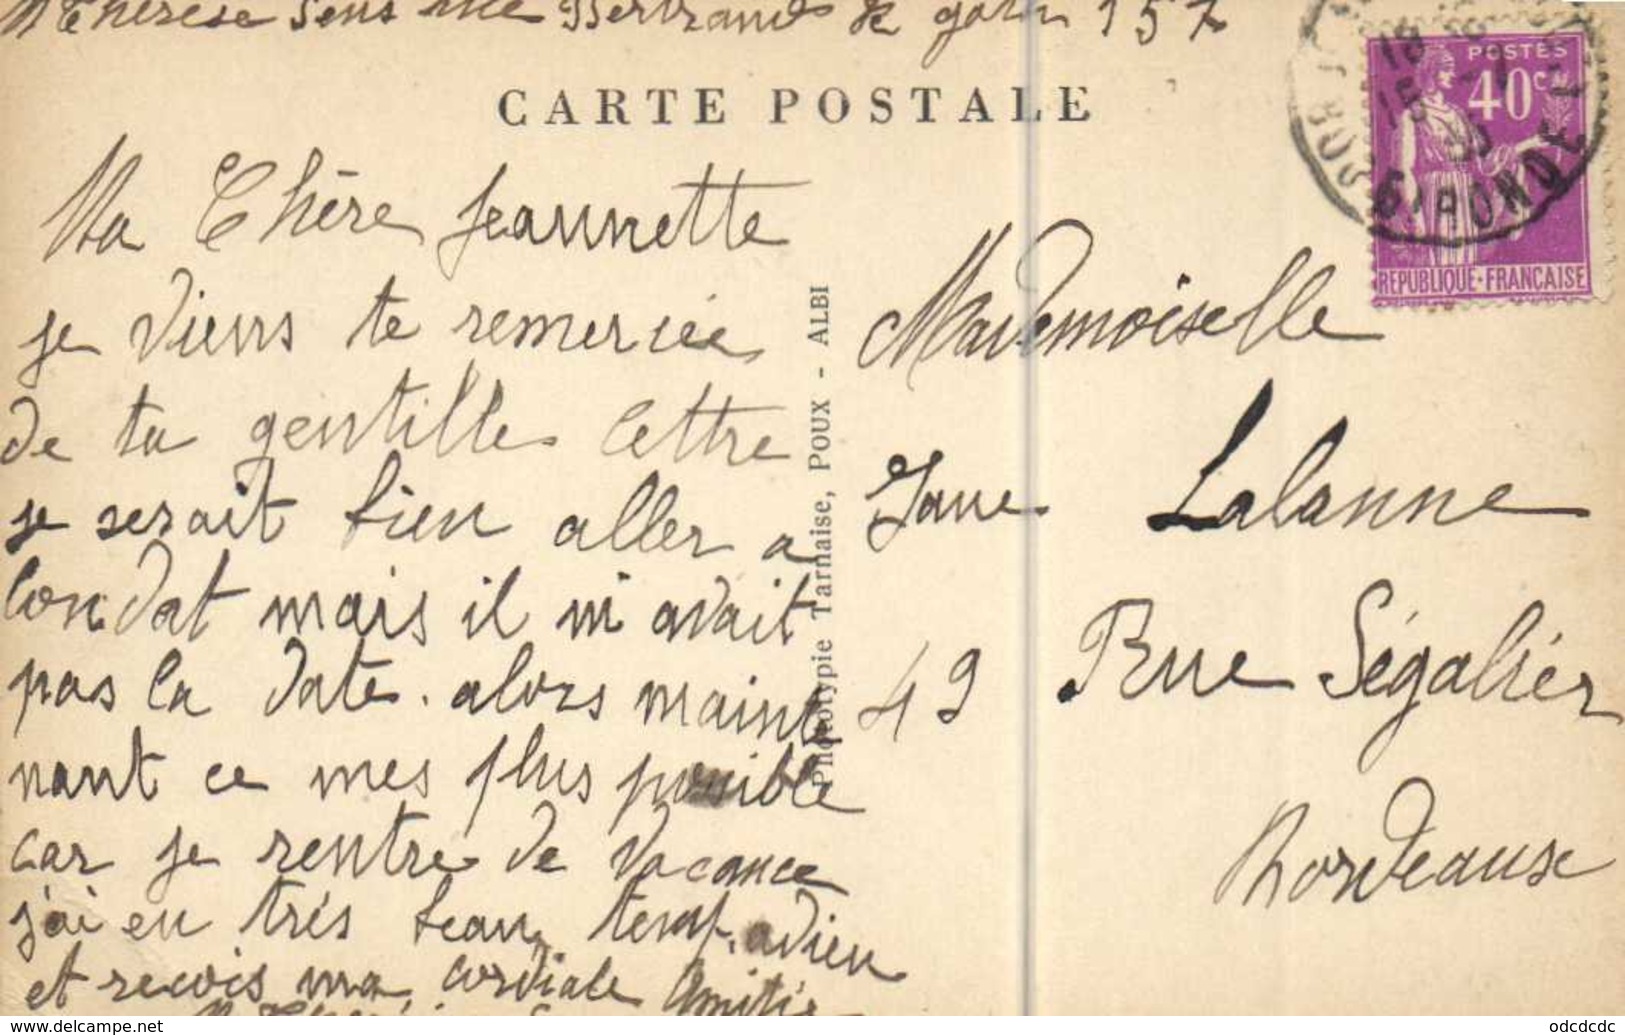 Therese Sens rue Bertrand de got n 157
CARTE POSTALE
Ma Chère Jeannette
je viens te remerciée
de ta gentille lettre
je serait bien aller a
Condat mais il m'avait
pas la date. alors mainte
nant ce mes plus possible
car je rentre de vacance
j'ai eu très beau temp. adieu
et recois ma cordiale Amitié
Phototypie Tarnaise, POUX - ALBI
POSTES
40c
GIRONDE
REPUBLIQUE·FRANÇAISE
Mademoiselle
Jane Lalanne
49 Rue Ségalier
Bordeaux
odcdcdc